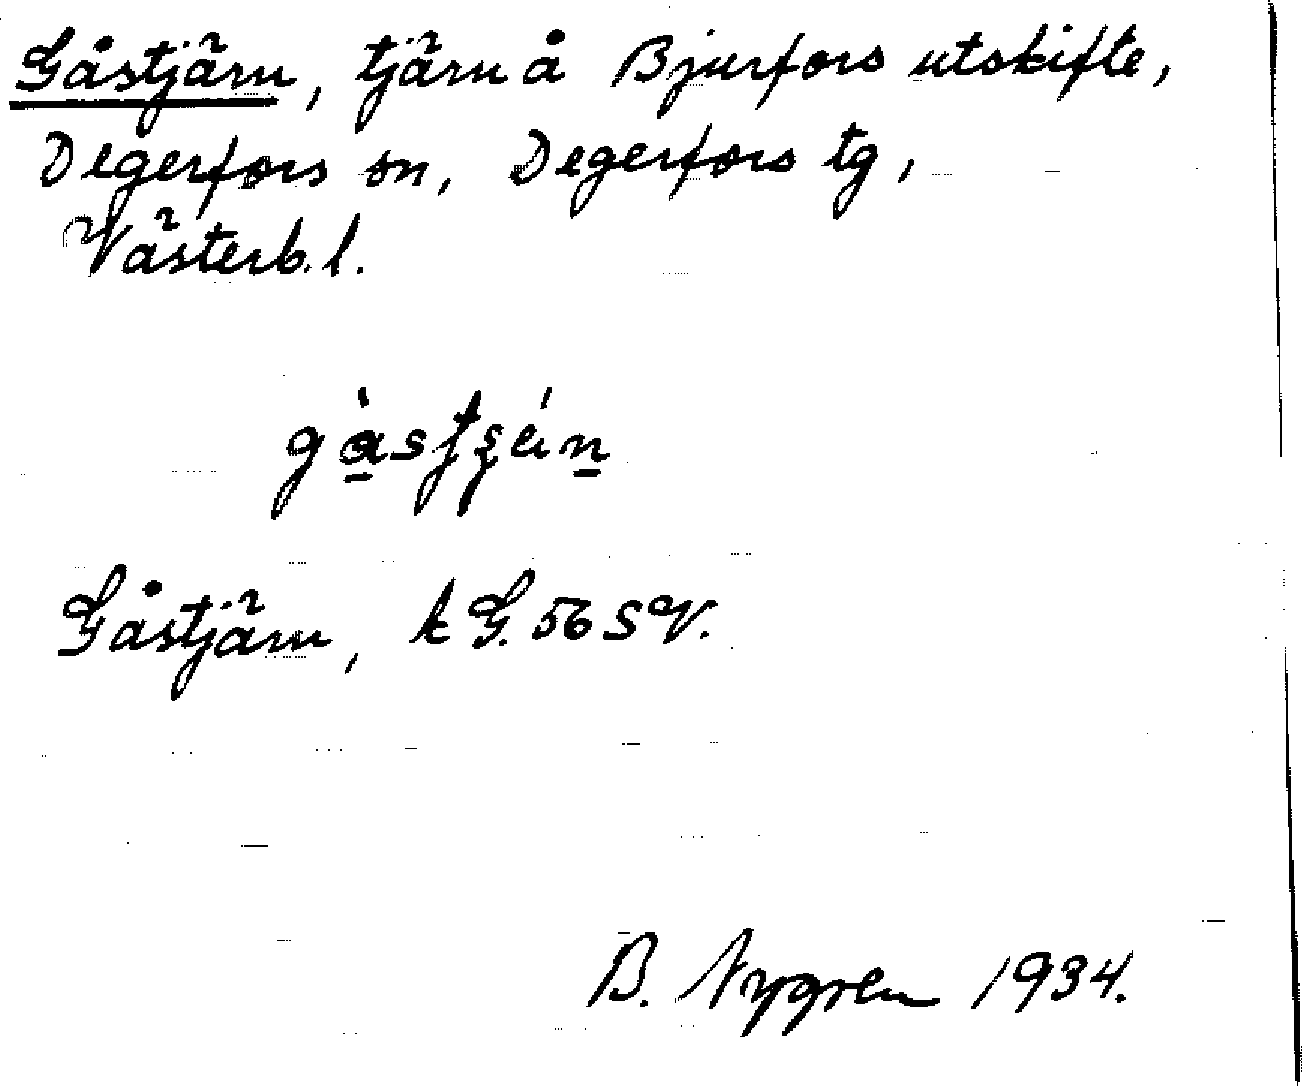 Gåstjärn, tjärn å Bjurfors utskifte,
Degerfors sn, Degerfors tg,
Västerb. l.
Gåstjärn, k G. 56 SV.
B. Nygren 1934.